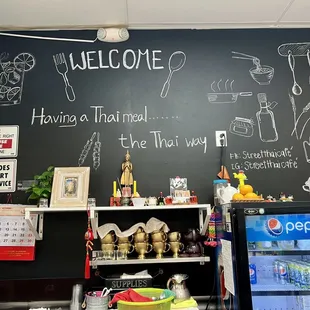 WELCOME
Having a Thai meal.......
the Thai way
FB: Streetthaicafe
IG: Streetthaicafe
RIGHT
DOES
SERVICE
SUPPLIES
pepsi